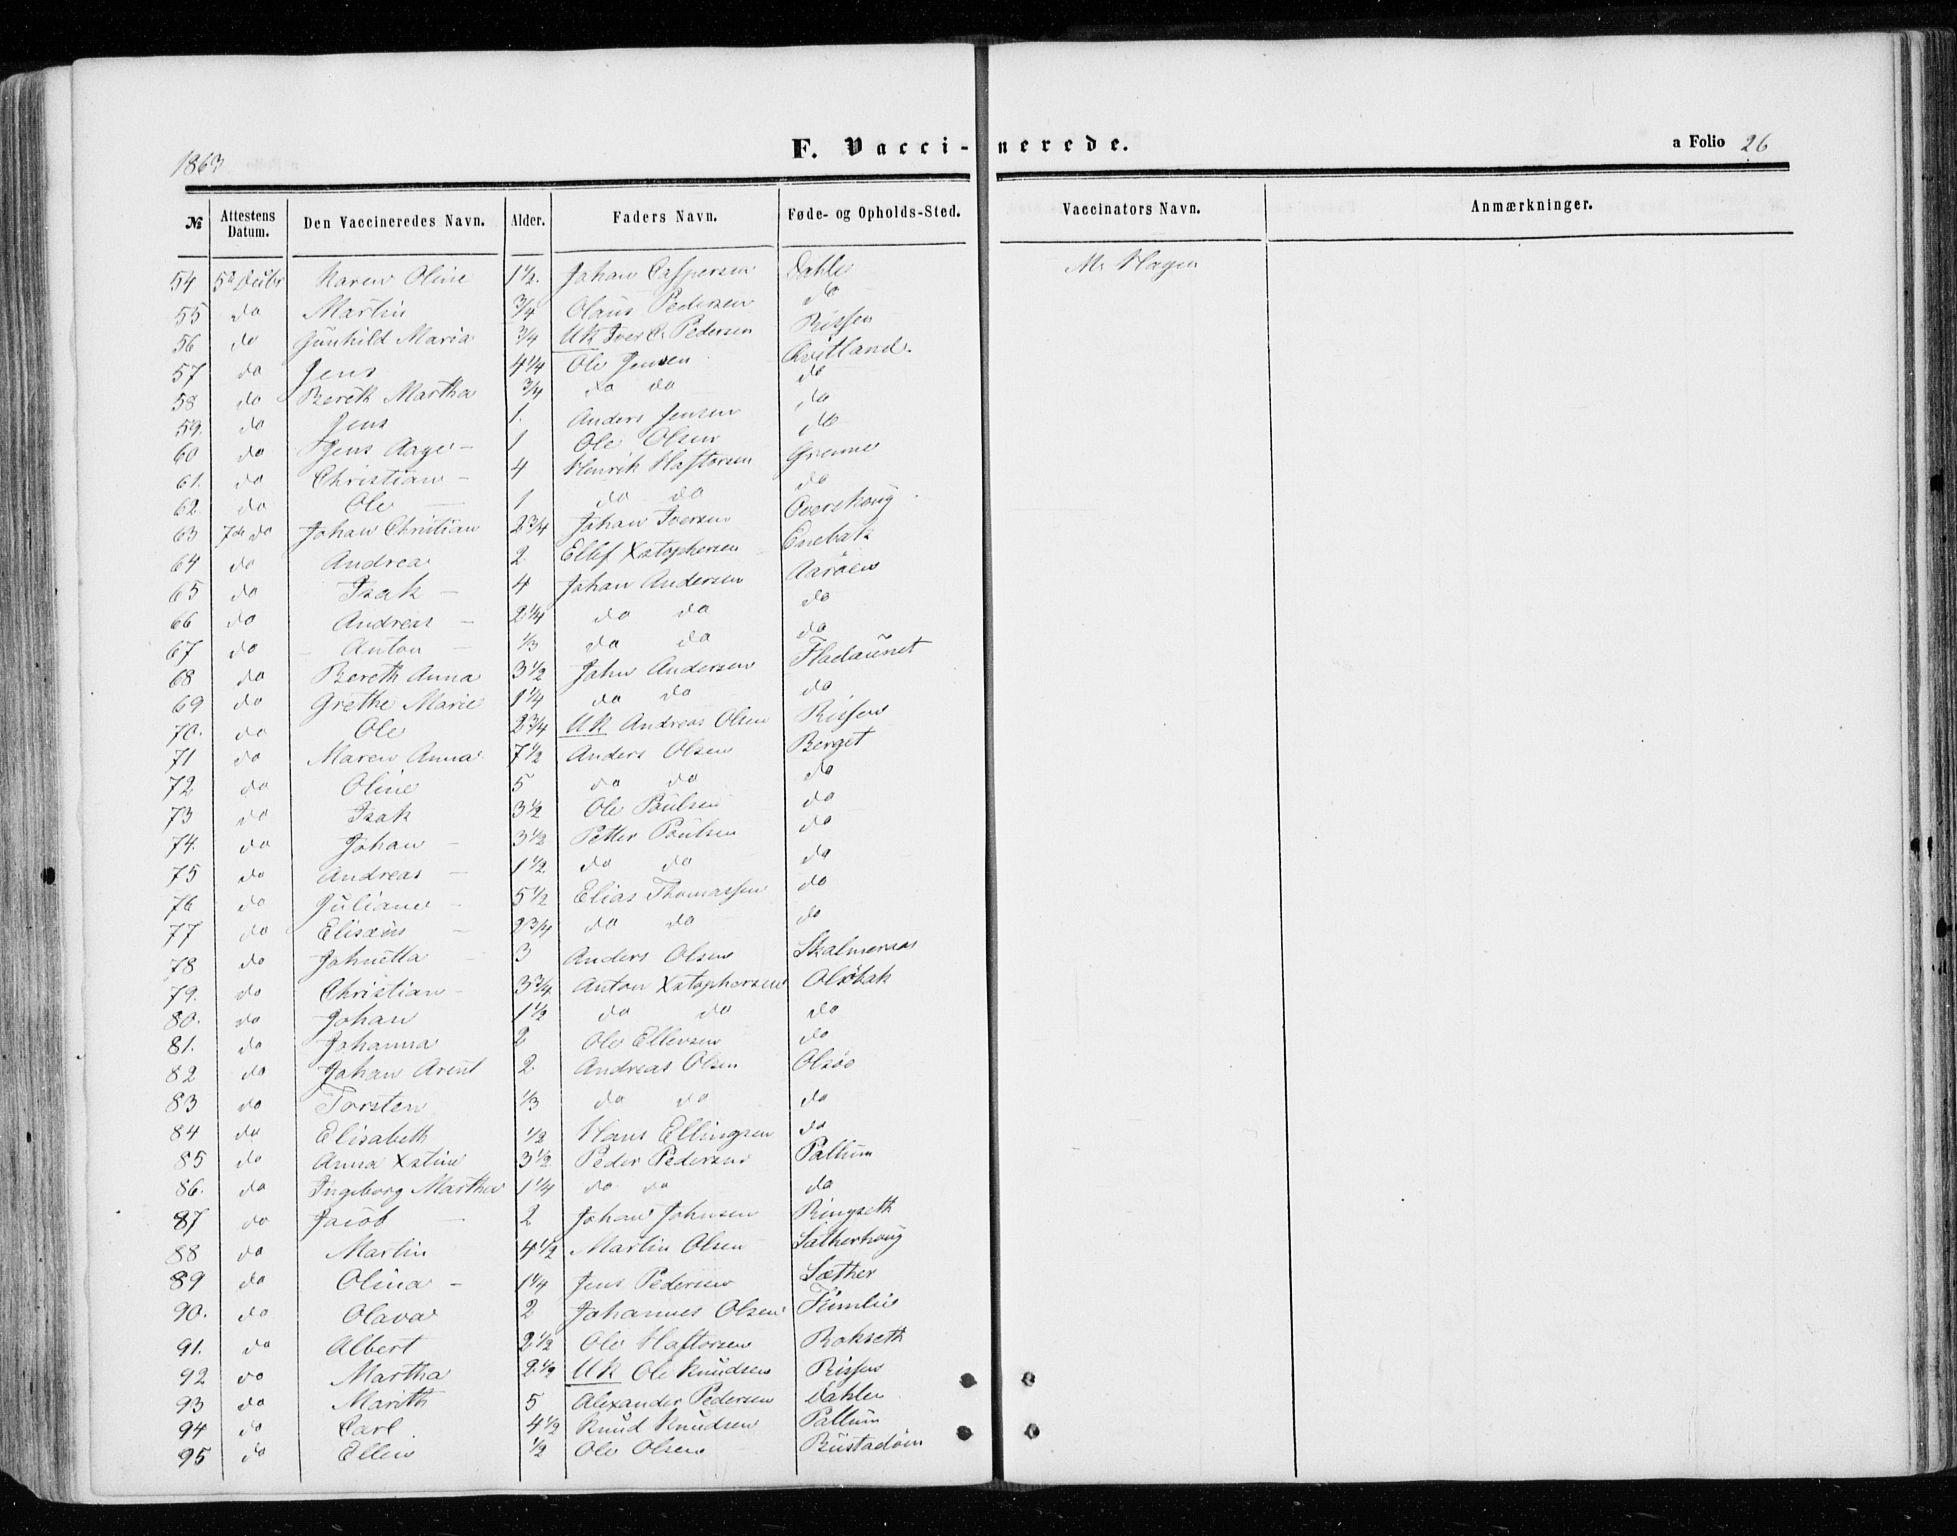 1863
F. Vaccinerede.
a Folio 26
№ Attestens Datum. Den Vaccineredes Navn. Alder. Faders Navn. Føde- og Opholds-Sted. Vaccinators Navn. Anmærkninger.
54 Karen Oline 1½. Johan Caspersen Dahle M. Hagen
55 do Martin ¾ Olaus Pedersen do
56 do Gunhild Maria ¾ UK Iver Pedersen Rissen
57 do Jens 4¼ Ole Jensen Qvitland.
58 do Bereth Martha ¾ do do do
59. do Jens 1. Anders Jensen do
60 do Jens Aage 1 Ole Olsen do
61. do Christian 4 Henrik Haftorsen Grenne
62. do Ole 1 do do do
63 7de do Johan Christian 2¾ Johan Iversen Overskoug
64 do Andrea 2. Ellef Xstophersen Enebak
65 do Isak 4 Johan Andersen Aarøen
66 do Andreas 2¼ do do do
67 do Anton ⅓ do do do
68 do Bereth Anna 3½ John Andersen Fladaunet
69 do Grethe Marie 1¼ do do do
70. do Ole 2¾ UK Andreas Olsen Rissen
71 do Maren Anna 7½ Anders Olsen Berget
72 do Oline 5 do do do
73 do Isak 3½ Ole Paulsen do
74. do Johan 3½ Petter Paulsen do
75 do Andreas 1½ do do do
76 do Juliane 5½ Elias Thomassen do
77 do Elisæus 2¾ do do do
78 do Johnetta 3 Anders Olsen Skalmeraas
79. do Christian 3¾ Anton Xstophersen Olsbak
80. do Johan 1½ do do do
81. do Johanna 2 Ole Ellevsen do
82 do Johan Arent 2. Andreas Olsen Olsøe
83 do Torsten ⅓ do do do
84 do Elisabeth ½ Hans Ellingsen do
85 do Anna Xstine 3½ Peder Pedersen Pallum
86. do Ingeborg Martha 1¼ do do do
87 do Jacob 2 Johan Johnsen Ringseth
88 do Martin 4½ Martin Olsen Sætherhoug
89 do Olina 1¼ Jens Pedersen Sæther
90. do Olava 2 Johannes Olsen Fimlie
91. do Albert 2½ Ole Haftorsen Rokseth
92 do Martha 2.½ UK Ole Knudsen Rissen
93 do Marith 5 Alexander Pedersen Dahlen
94 do Carl. 4½ Knud Knudsen Pallum
95 do Ellen ½ Ole Olsen Rustadøm